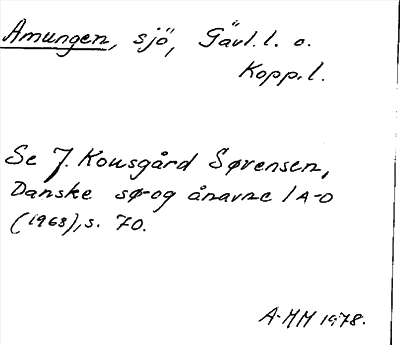 Amungen, sjö, Gävl. l. o.
Kopp. l.
Se J. Kousgård Sørensen,
Danske sø- og ånavne 1 A-D
(1968), s. 70.
A-MM 1978.